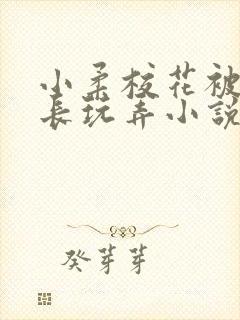 小柔校花被
长玩弄小説
癸芽芽